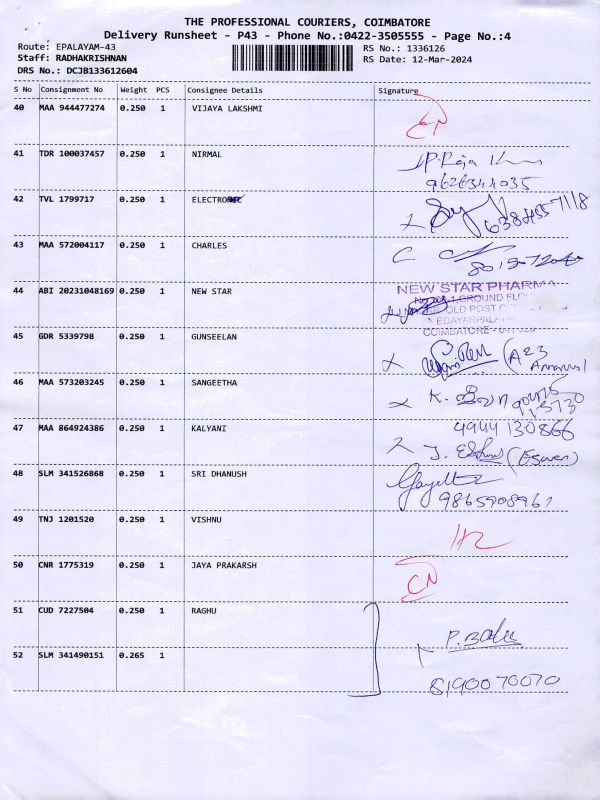 THE PROFESSIONAL COURIERS, COIMBATORE
Delivery Runsheet - P43 - Phone No.:0422-3505555 - Page No.:4
Route: EPALAYAM-43 RS No.: 1336126
Staff: RADHAKRISHNAN RS Date: 12-Mar-2024
DRS No.: DCJB133612604
S No Consignment No Weight PCS Consignee Details Signature
40 MAA 944477274 0.250 1 VIJAYA LAKSHMI
41 TDR 100037457 0.250 1 NIRMAL P. Raja
9626344035
42 TVL 1799717 0.250 1
43 MAA 572004117 0.250 1 CHARLES
44 ABI 20231048169 0.250 1 NEW STAR NEW STAR PHARMA
1, GROUND
OLD POST
COIMBATORE
45 GDR 5339798 0.250 1 GUNSEELAN (A23
46 MAA 573203245 0.250 1 SANGEETHA K.
47 MAA 864924386 0.250 1 KALYANI 130866
J. (Eswari)
48 SLM 341526868 0.250 1 SRI DHANUSH
9865908961
49 TNJ 1201520 0.250 1 VISHNU
50 CNR 1775319 0.250 1 JAYA PRAKARSH CN
51 CUD 7227504 0.250 1 RAGHU P. Balu
52 SLM 341490151 0.265 1
8190070070